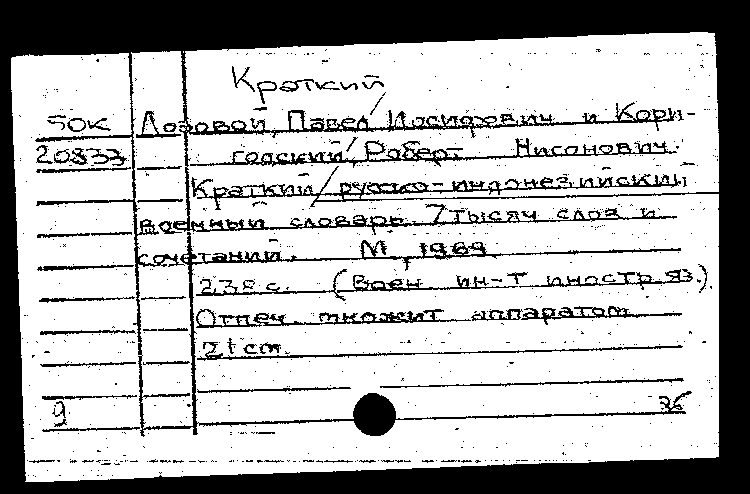 Краткий
50К Лозовой, Павел Иосифович и Кори-
20833 годский, Роберт Нисонович.
Краткий русско-индонезийский
военный словарь. 7 тысяч слов и
сочетаний. М., 1969.
238 с. (Воен. ин-т иностр. яз.)
Отпеч. множит. аппаратом
21 cm.
9